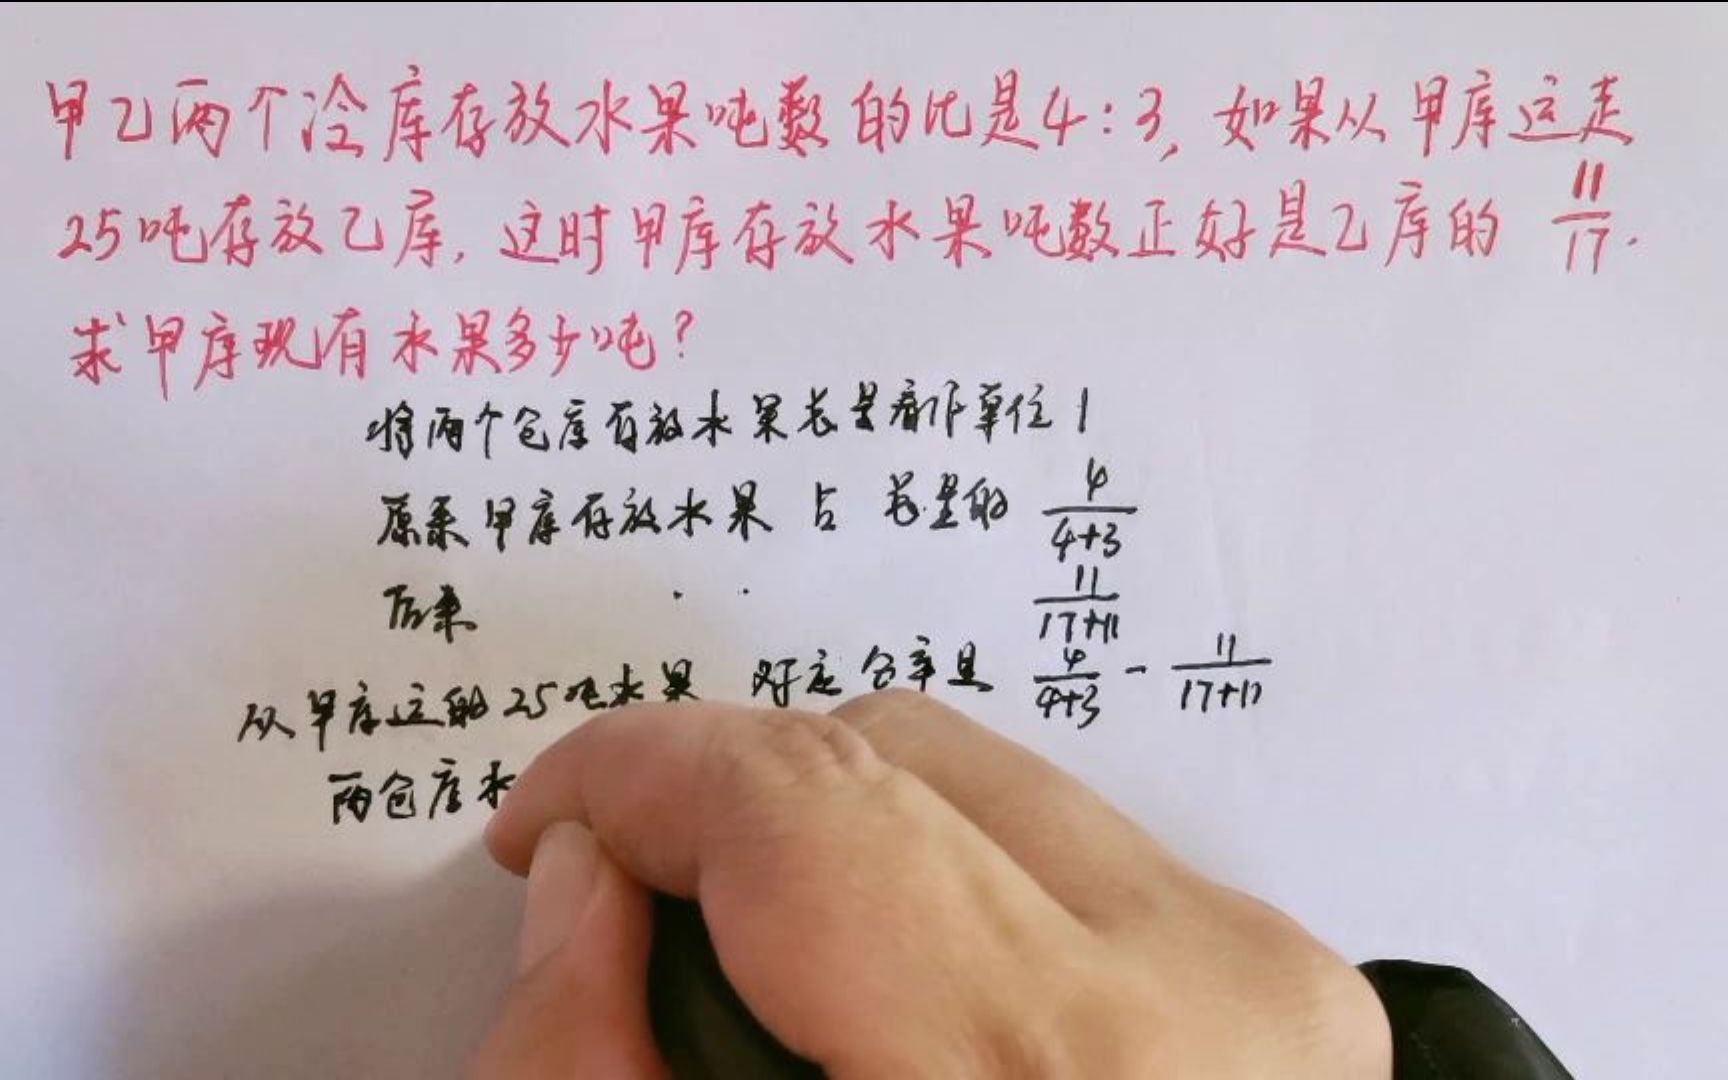 甲乙两个冷库存放水果吨数的比是4:3,如果从甲库运走
25吨存放乙库,这时甲库存放水果吨数正好是乙库的 11/17.
求甲库现有水果多少吨?
将两个仓库存放水果总量看作单位1
原来甲库存放水果 占 总量的 4/(4+3)
后来 · · 11/(17+11)
从甲库运的25吨水果 对应分率是 4/(4+3) - 11/(17+11)
两仓库水